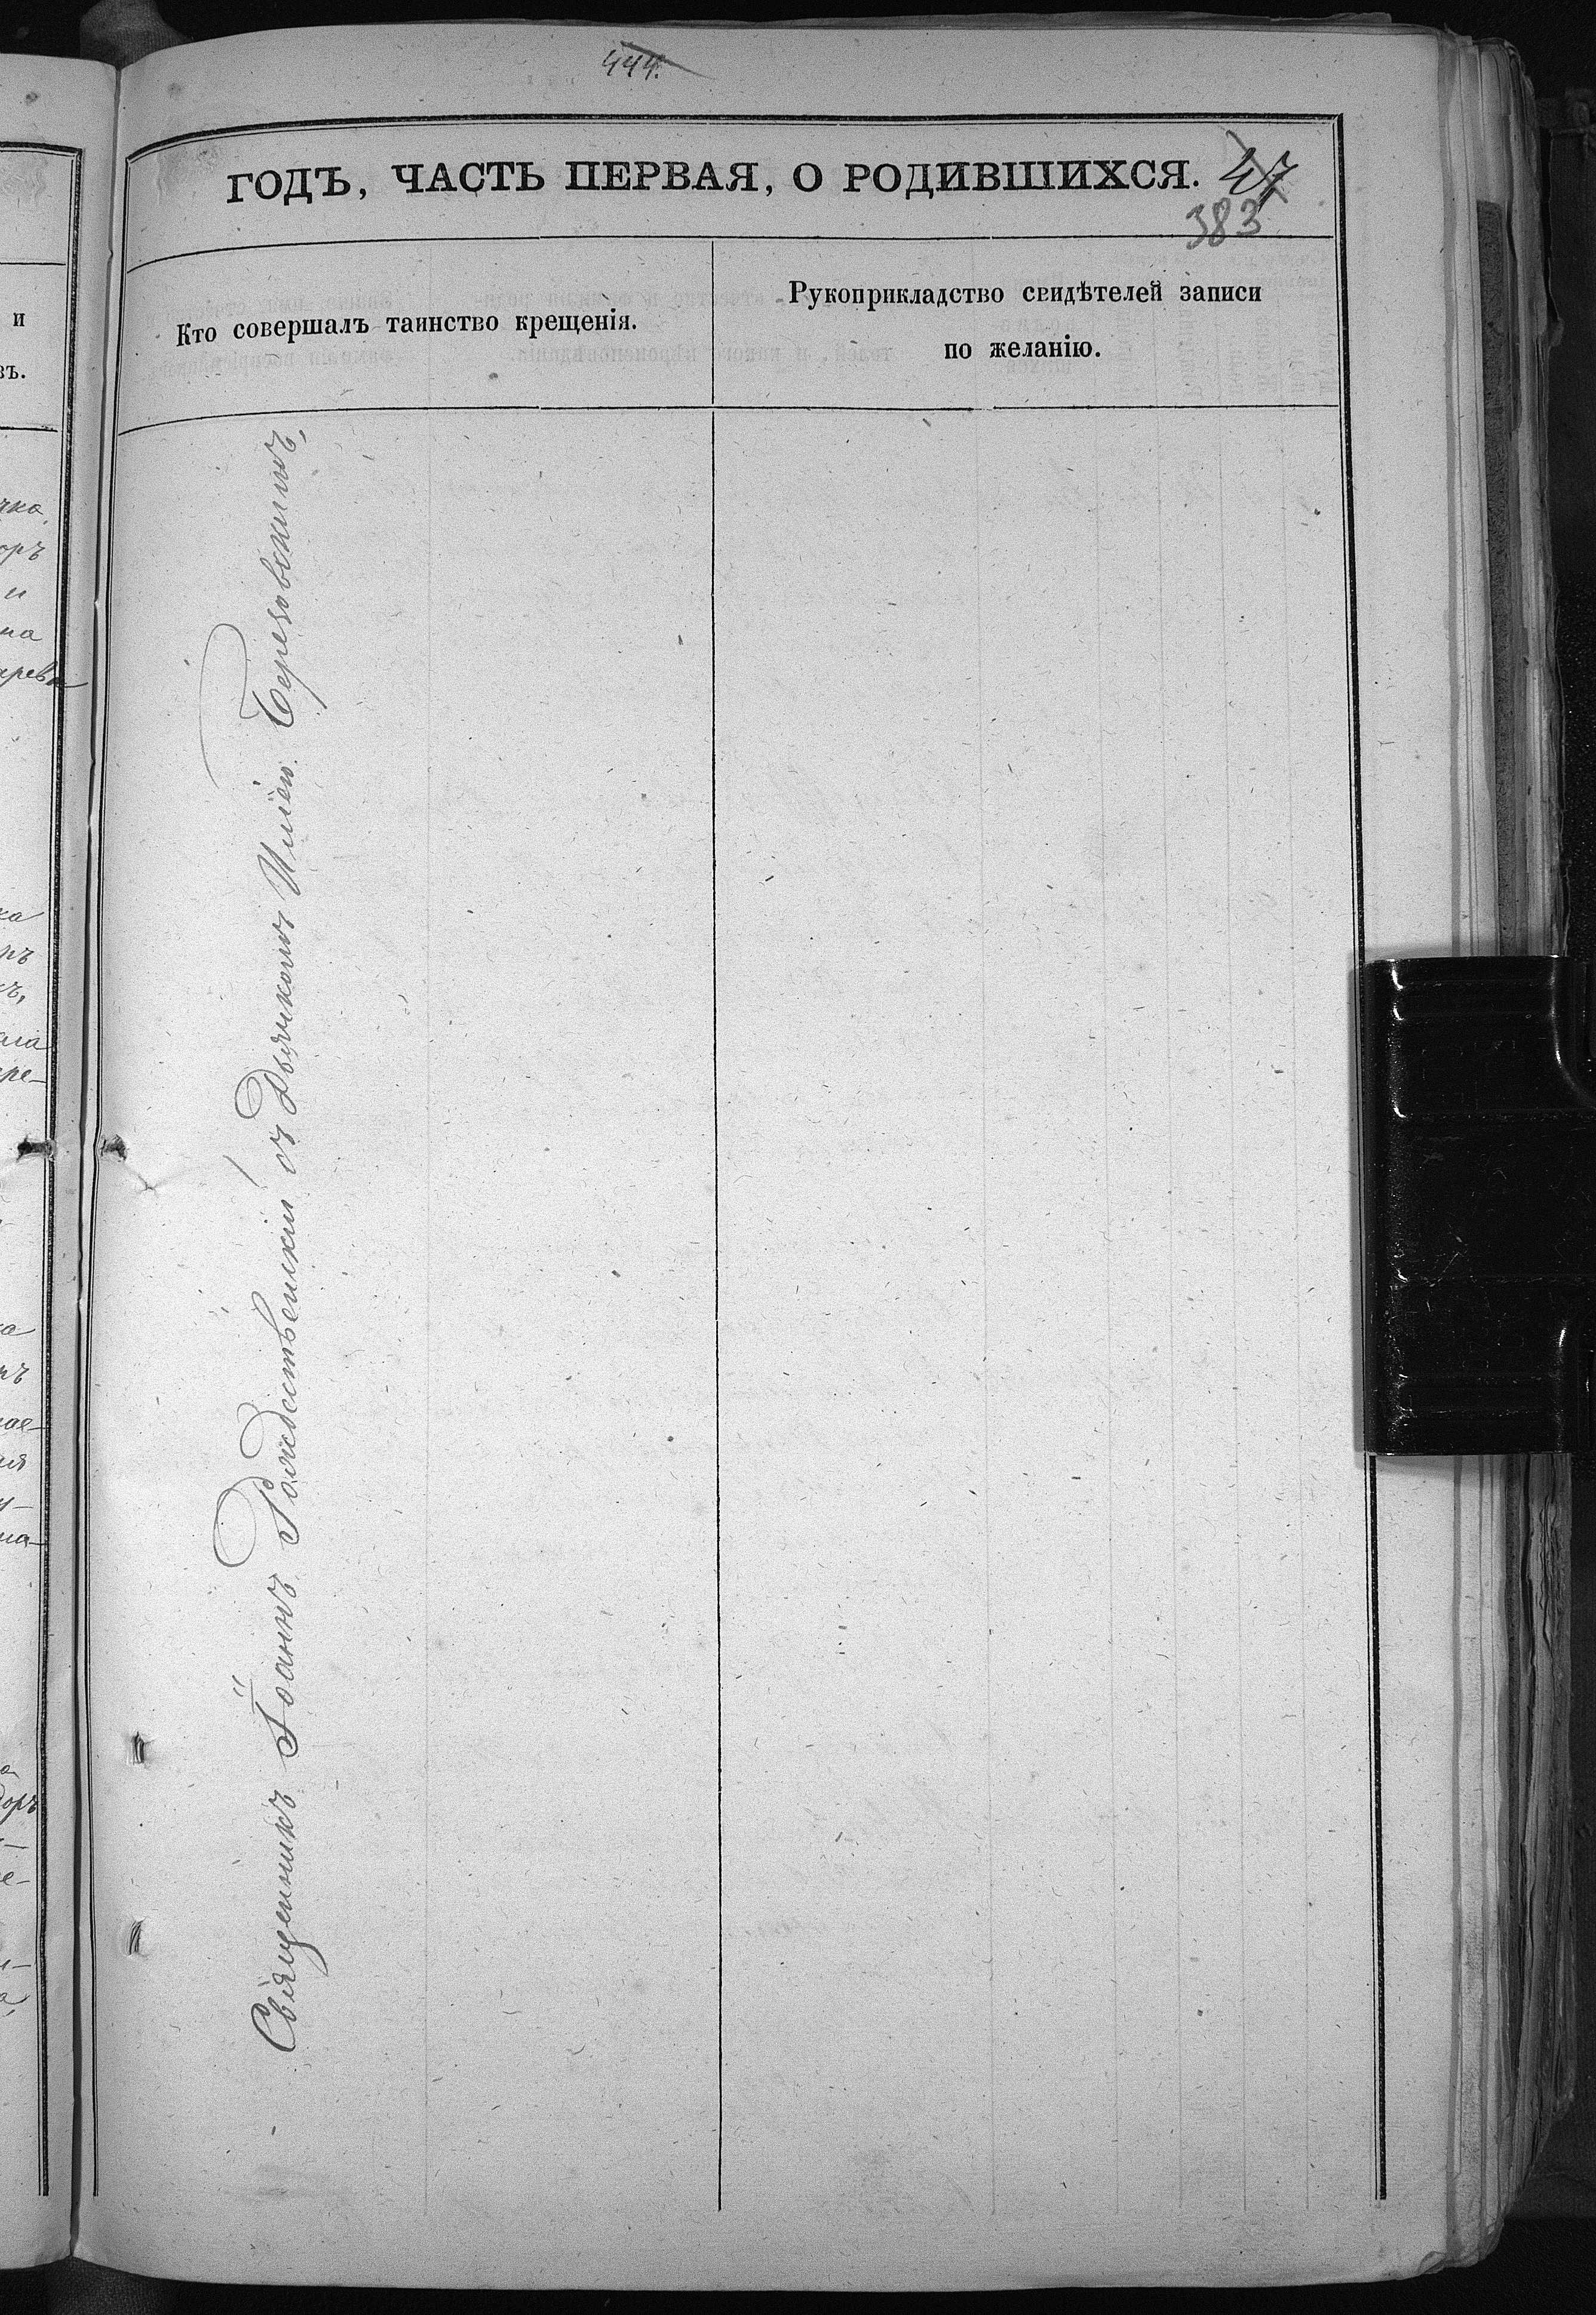 444.
ГОДЪ, ЧАСТЬ ПЕРВАЯ, О РОДИВШИХСЯ. 47
383
Кто совершалъ таинство крещенія.
Рукоприкладство свидѣтелей записи
по желанію.
Священникъ Іоаннъ Рождественскій съ Дьячкомъ Иліею Березовскимъ,
и
въ.
чка
оръ
и
на
арева
ка
ръ
ре-